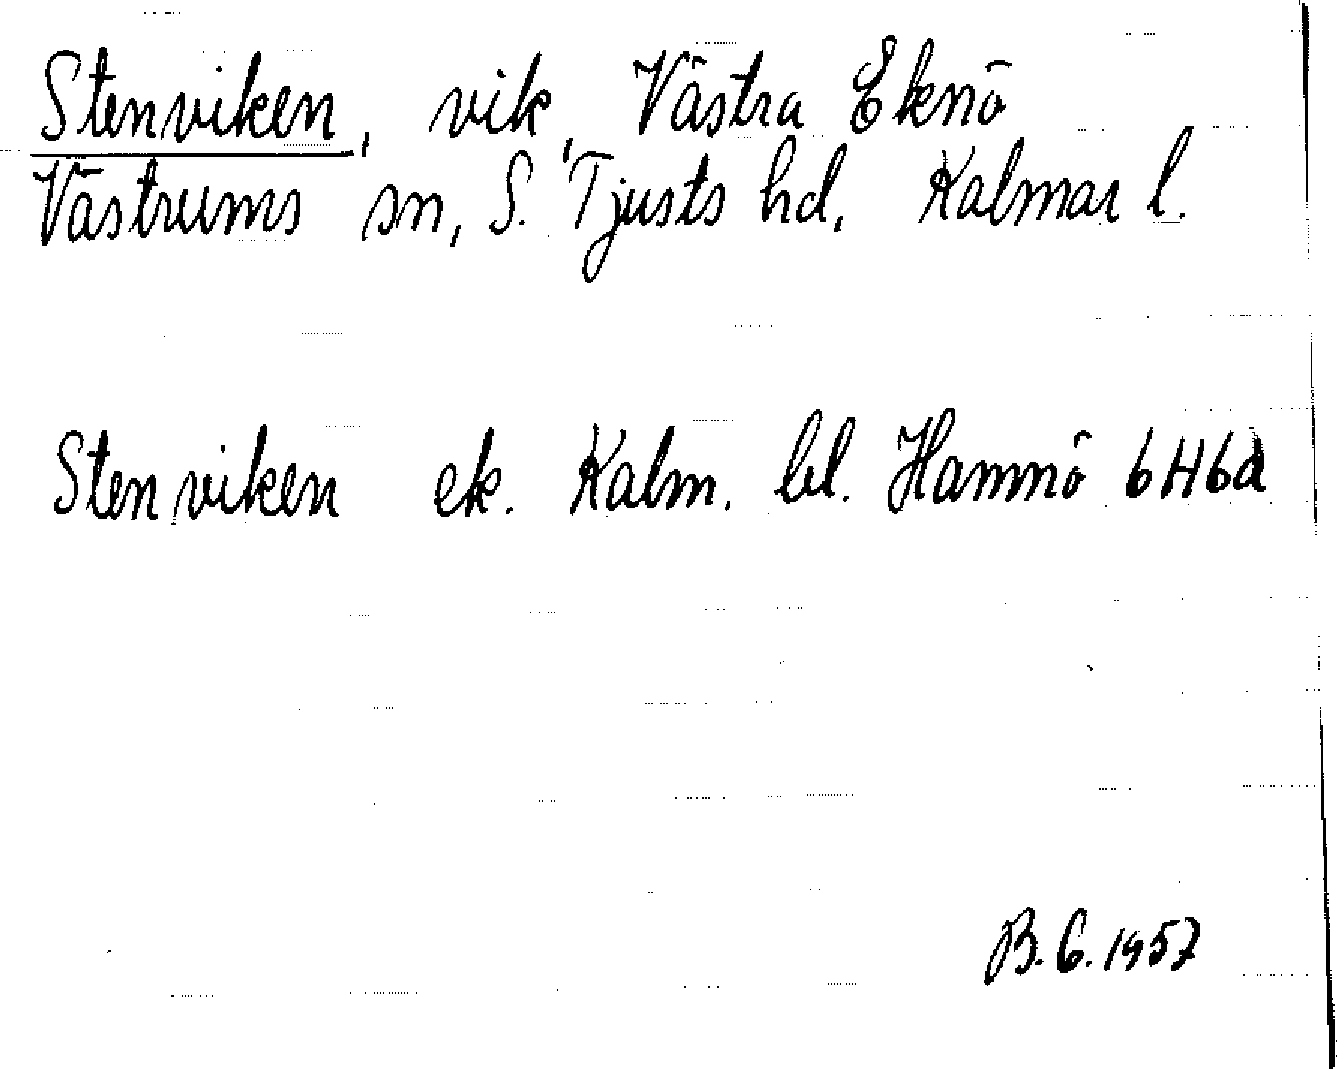 Stenviken, vik, Västra Eknö
Västrums sn, S. Tjusts hd, Kalmar l.
Stenviken ek. Kalm. bl. Hamnö 6H6d
B.G.1957